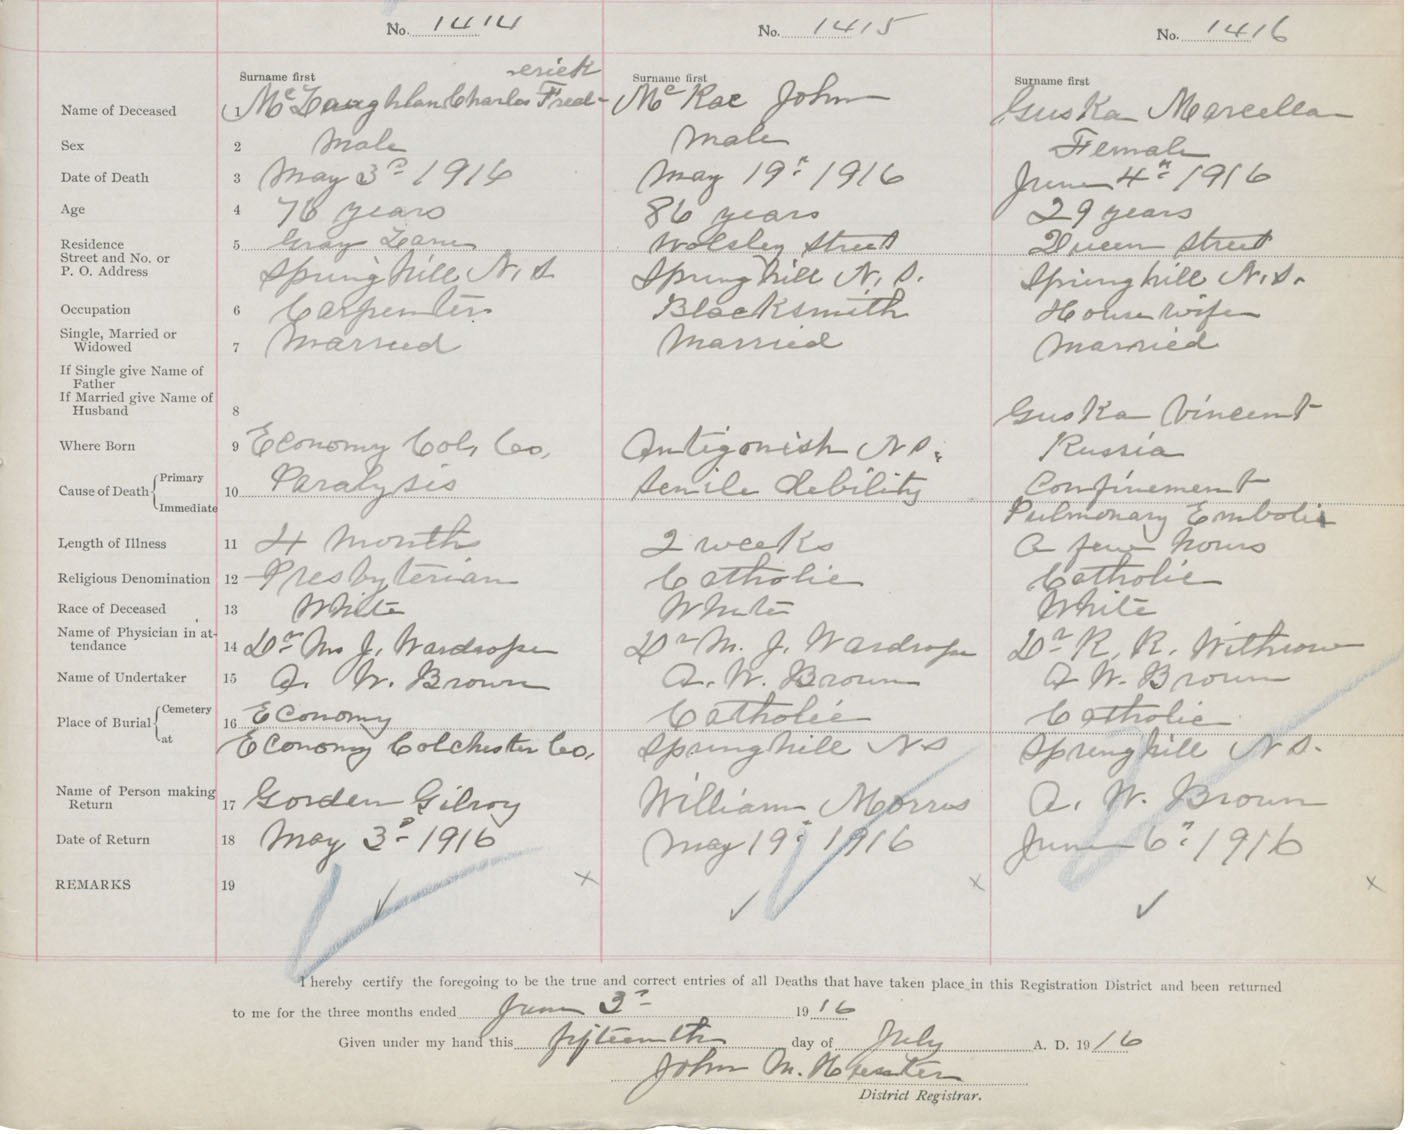 No. 1414 No. 1415 No. 1416
erick
Surname first Surname first Surname first
Name of Deceased 1 McLaughlan Charles Fred- McRae John Guska Marcella
Sex 2 Male Male Female
Date of Death 3 May 3d 1916 May 19th 1916 June 4th 1916
Age 4 76 years 86 years 29 years
Residence 5 Gray Lane Wolsley Street Queen Street
Street and No. or
P. O. Address Springhill N.S. Springhill N.S. Springhill N.S.
Occupation 6 Carpenter Blacksmith House wife
Single, Married or
Widowed 7 Married Married Married
If Single give Name of
Father
If Married give Name of
Husband 8 Guska Vincent
Where Born 9 Economy Col, Co, Antigonish N.S. Russia
Cause of Death Primary 10 Paralysis Senile debility Confinement
Immediate Pulmonary Emboli
Length of Illness 11 4 months 2 weeks A few hours
Religious Denomination 12 Presbyterian Catholic Catholic
Race of Deceased 13 White White White
Name of Physician in at-
tendance 14 Dr M. J. Wardrope Dr M. J. Wardrope Dr R. R. Withrow
Name of Undertaker 15 A. W. Brown A. W. Brown A W. Brown
Place of Burial Cemetery 16 Economy Catholic Catholic
at Economy Colchester Co, Springhill NS Springhill N S.
Name of Person making
Return 17 Gorden Gilroy William Morris A. W. Brown
Date of Return 18 May 3d 1916 May 19th 1916 June 6th 1916
REMARKS 19 x x x
I hereby certify the foregoing to be the true and correct entries of all Deaths that have taken place in this Registration District and been returned
to me for the three months ended June 3d 1916
Given under my hand this fifteenth day of July A. D. 1916
John M. Hunter
District Registrar.